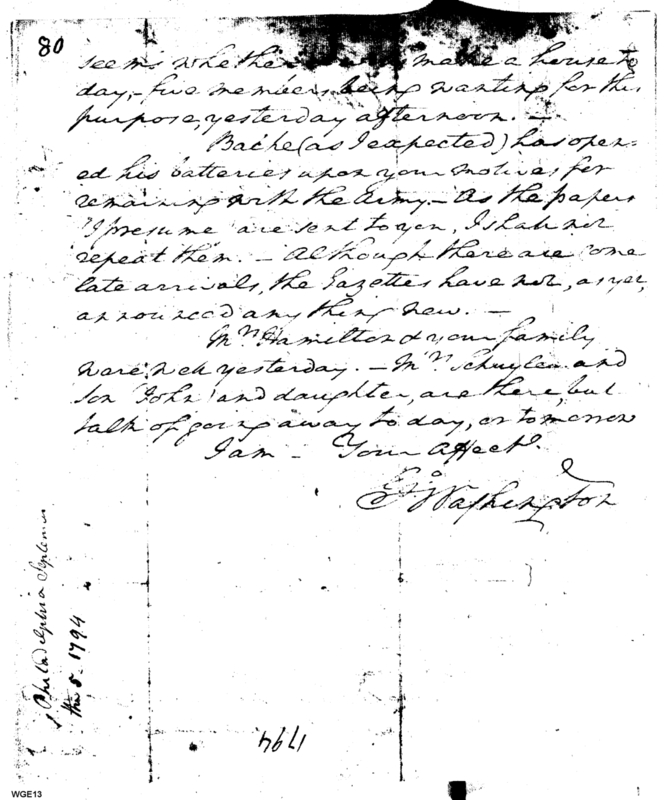 80
seems whether make a house to
day, - five members being wanting for this
purpose, yesterday afternoon. -
Bache (as I expected) has open-
ed his batteries upon your motives for
remaining with the Army. - As the papers
I presume are sent to you, I shall not
repeat them. - Although there are some
late arrivals, the Gazettes have not, as yet,
announced any thing new. -
Mrs Hamilton & your family
were well yesterday. - Mrs Schuyler and
son John and daughter, are there, but
talk of going away to day, or tomorrow
I am - Your Affecte.
Go Washington
Philadelphia September
the 5 1794
1794
WGE13